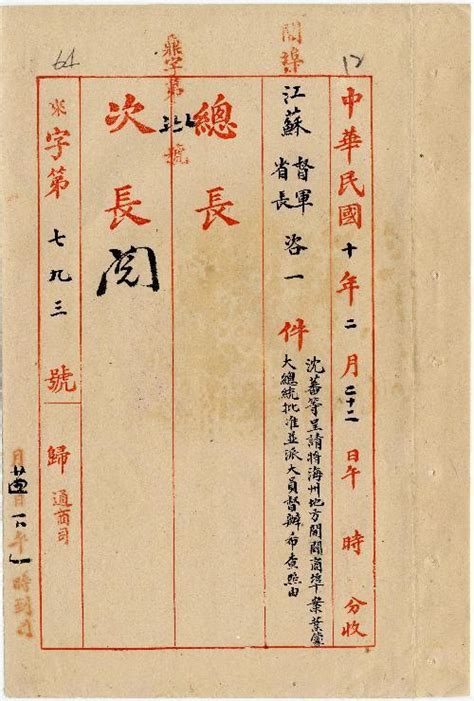 12
開埠
64
中華民國十年二月二十二日午 時 分收
江蘇督軍省長咨一件
沈蕃等呈請將海州地方開闢商埠一案業蒙
大總統批准並派大員督辦希查照由
鼎字第 號
總長
次長
閱
來字第七九三號
歸通商司